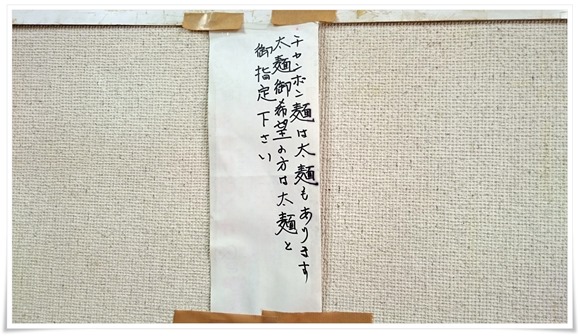 チャンポン麺は太麺もあります
太麺御希望の方は太麺と
御指定下さい